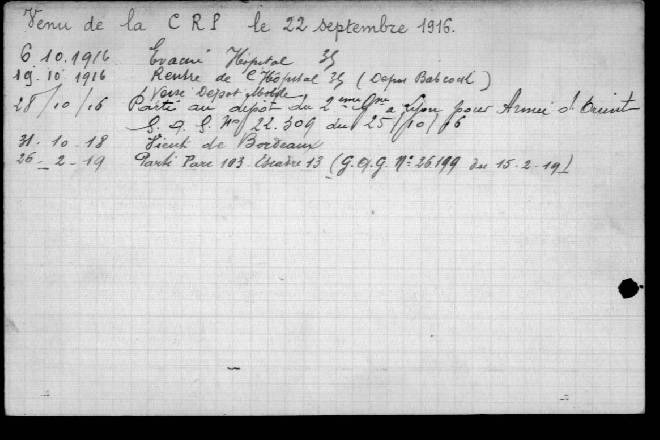 Venu de la C R P le 22 septembre 1916.
6 10.1916 Evacué Hôpital 35
19. 10 1916 Rentré de l'Hôpital 35 (Depot Babcock)
Versé Depot Mobile
28/10/16 Parti au dépôt du 2eme Gre à Lyon pour Armée d'Orient
G. Q. G. No 22.309 du 25/10/16
31. 10 - 18 Vient de Bordeaux
26 - 2 - 19 Parti Parc 103 Escadre 13 (G.Q.G. No 26199 du 15-2-19)